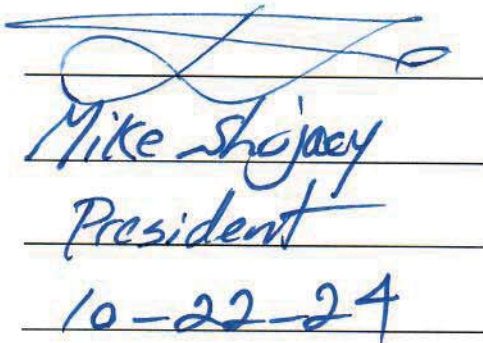 Mike Shojaey
President
10-22-24